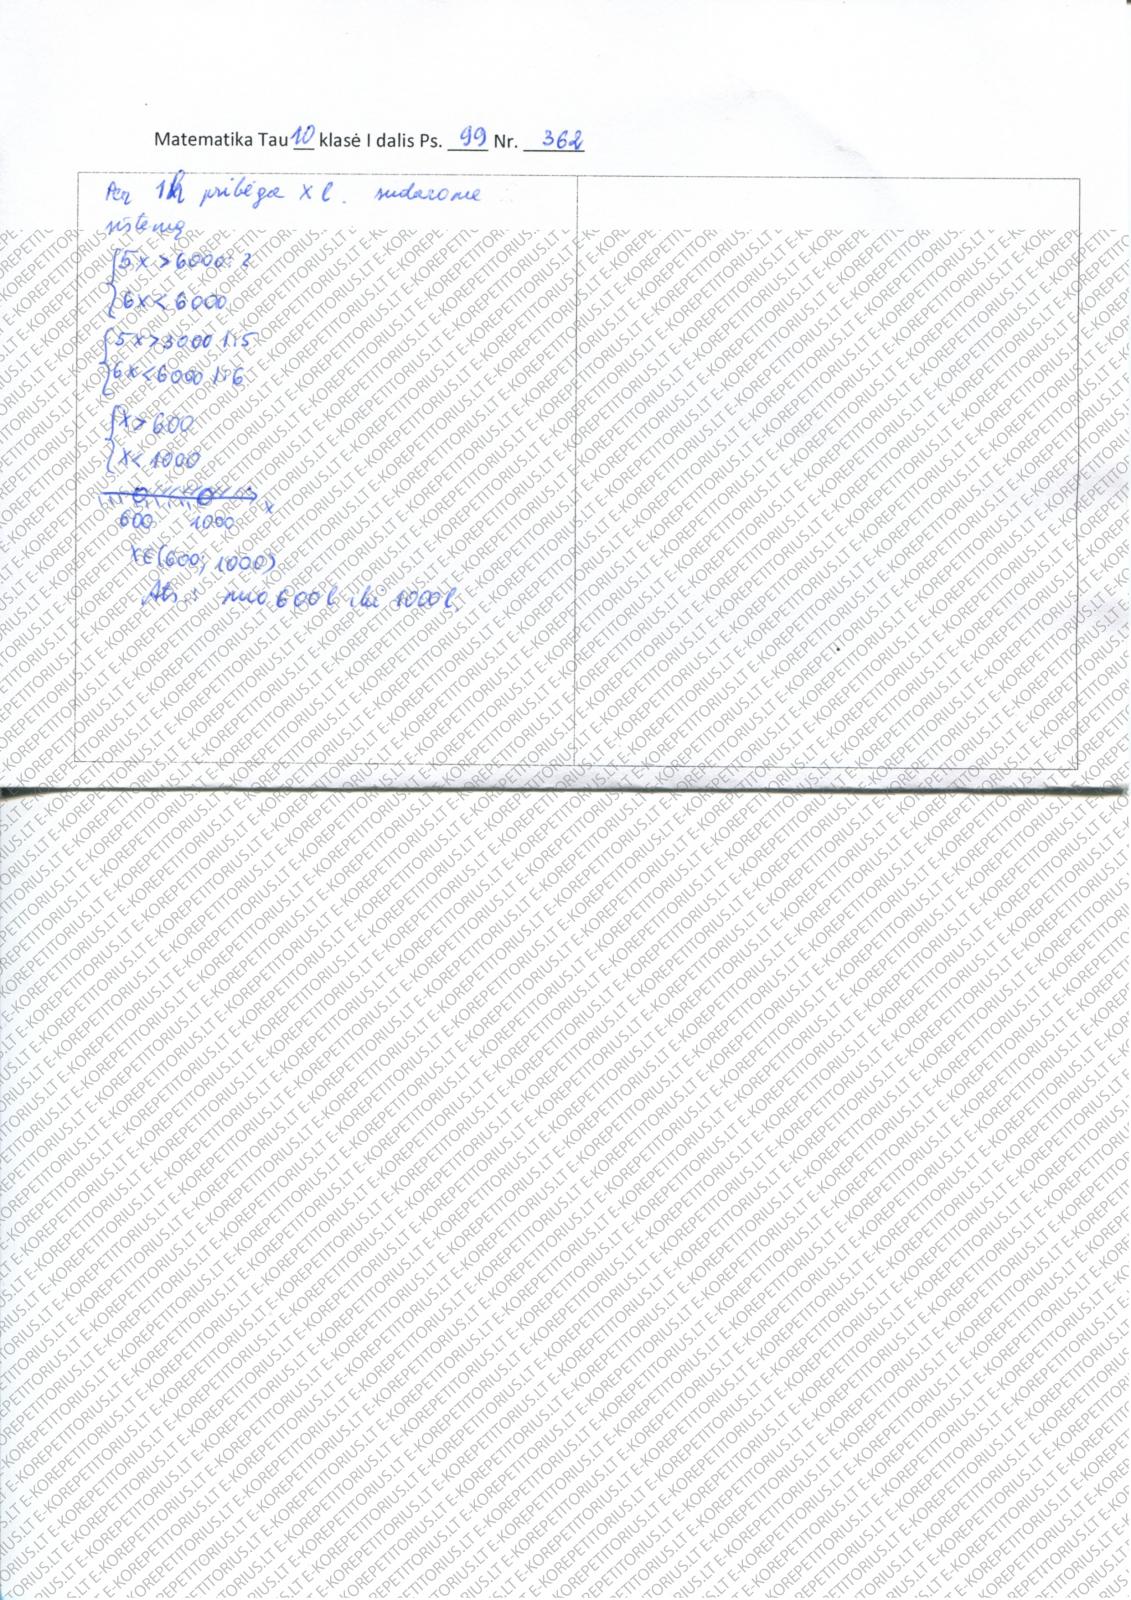 Matematika Tau 10 klasė I dalis Ps. 99 Nr. 362
Per 1h pribėga x l. sudarome
sistemą
{5x > 6000 : 2
{6x < 6000
{5x > 3000 |:5
{6x < 6000 |:6
{x > 600
{x < 1000
600 1000 x
x∈(600; 1000)
Ats.: nuo 600 l iki 1000 l.
E-KOREPETITORIUS.LT